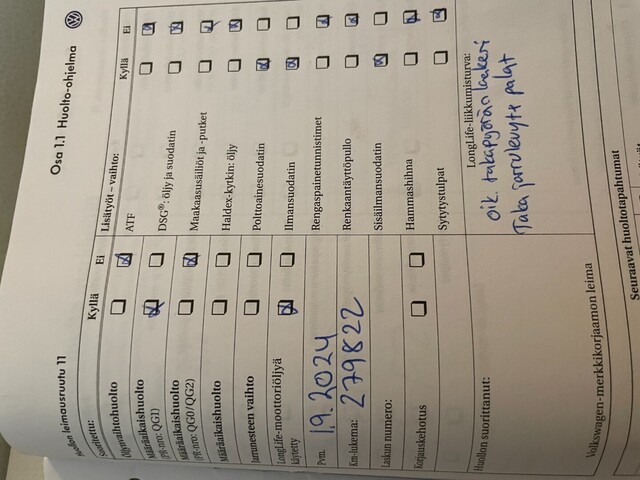 Osa 1.1 Huolto-ohjelma
Huollon leimausruutu 11
Suoritettu:
Kyllä
Ei
Öljynvaihtohuolto
Määräaikaishuolto
(PR-nro: QG1)
Määräaikaishuolto
(PR-nro: QG0/QG2)
Määräaikaishuolto
Jarrunesteen vaihto
LongLife-moottoriöljyä
käytetty
Pvm. 1.9.2024
Km-lukema: 279822
Laskun numero:
Korjauskehotus
Huollon suorittanut:
Volkswagen-merkkikorjaamon leima
Lisätyöt – vaihto:
Kyllä
Ei
ATF
DSG®: öljy ja suodatin
Maakaasusäiliöt ja -putket
Haldex-kytkin: öljy
Polttoainesuodatin
Ilmansuodatin
Rengaspainetunnistimet
Renkaantäyttöpullo
Sisäilmansuodatin
Hammashihna
Sytytystulpat
LongLife-liikkumisturva:
oik. takapyörän laakeri
Taka jarrulevyt+palat
Seuraavat huoltotapahtumat